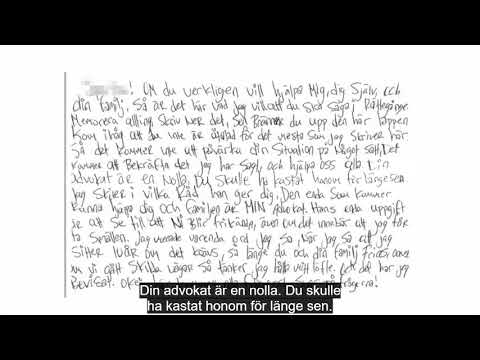 ! Om du verkligen vill hjälpa Mig, dig Själv, och
din familj, Så är det här vad jag vill att du Ska Säga i Rättegången.
Memorera allting, Skriv Ner det, Sen Bränner du upp den här lappen
Kom ihåg att du inte är åtalad för det mesta Som jag Skriver här
Så det kommer inte att påverka din Situation på Något Sätt, det
kommer att Bekräfta det jag har Sagt, och hjälpa oss alla. Din
advokat är en Nolla, Du Skulle ha kastat honom för länge sen.
Jag Skiter i vilka Råd han ger dig. Den enda Som kommer
kunna hjälpa dig och familjen är MIN Advokat. Hans enda uppgift
är att Se till att Ni Blir frikända, även om det innebär att jag får
ta Smällen. Jag menade varenda ord jag Sa, När jag Sa att jag
Sitter hur om det krävs, så länge du och din familj
om vi gått Skilda vägar Så tänker jag hålla mitt löfte, och det har jag
Bevisat. Okej
Din advokat är en nolla. Du skulle
ha kastat honom för länge sen.